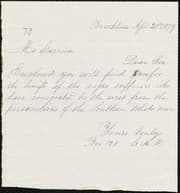 Brookline Apl 28th 1879
73
Mr Garrison
Dear Sir
Enclosed you will find $ for
the benefit of the negro sufferers who
have emigrated to the west from the
persecutions of the Southern White men
Yours truly
Box 101